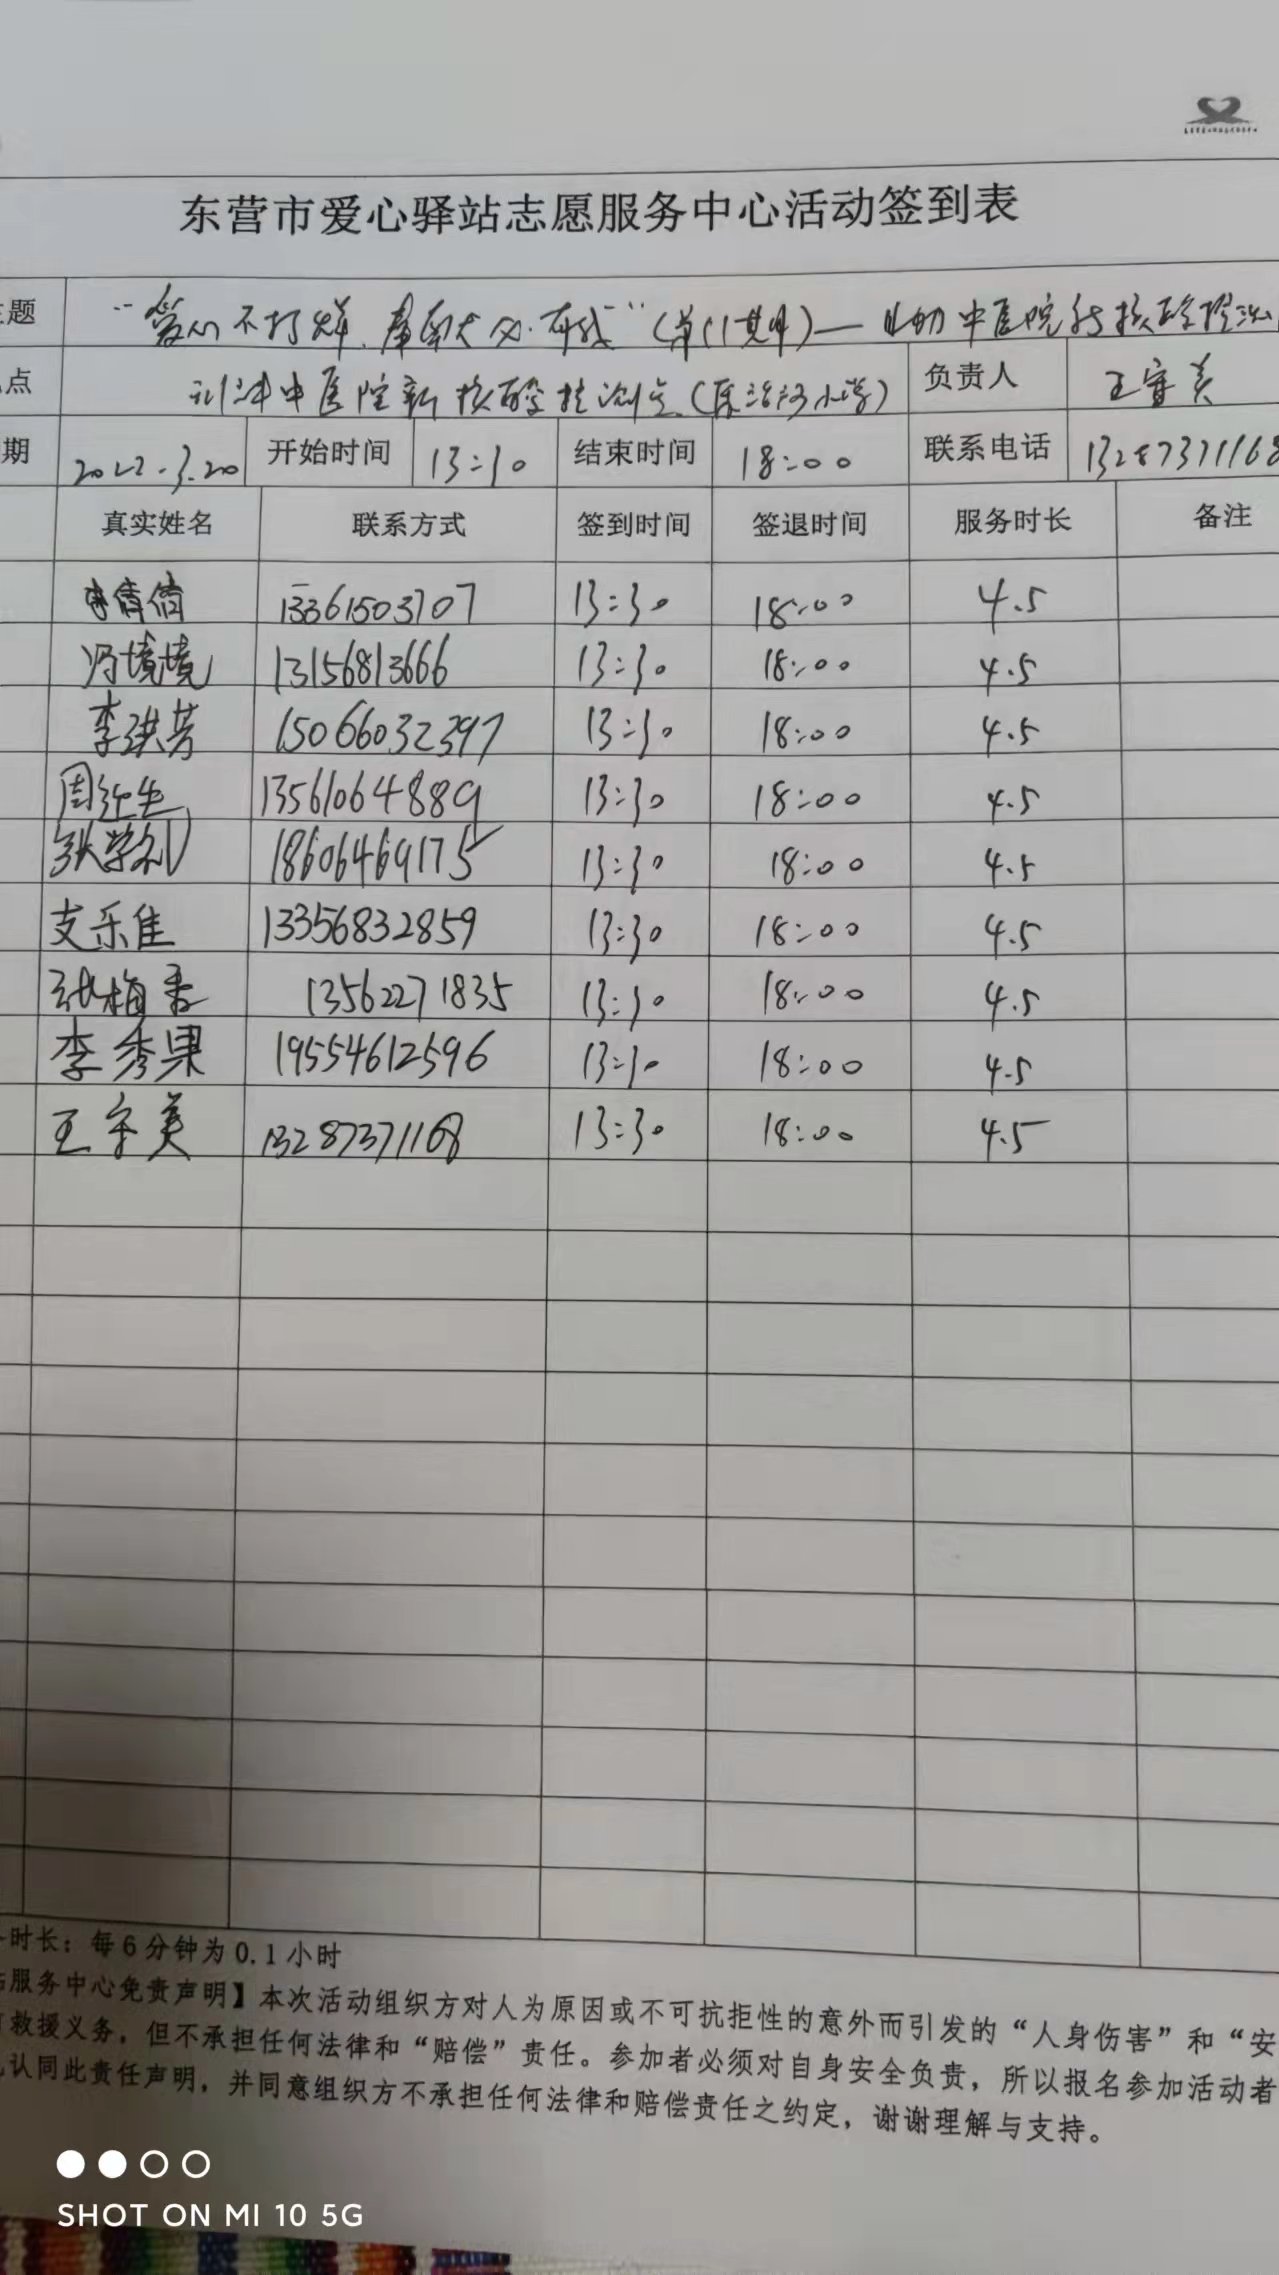 东营市爱心驿站志愿服务中心活动签到表
题 “爱心不打烊, 有我”(第11期)— 协助中医院 核酸检测
点 中医院新核酸检测点 负责人 王守美
期 2022.3.20 开始时间 13:30 结束时间 18:00 联系电话 13287371168
真实姓名 联系方式 签到时间 签退时间 服务时长 备注
李倩倩 13361503707 13:30 18:00 4.5
冯境境 13156813666 13:30 18:00 4.5
李洪芳 15066032397 13:30 18:00 4.5
周 生 13561064889 13:30 18:00 4.5
张学礼 18606469175 13:30 18:00 4.5
支乐佳 13356832859 13:30 18:00 4.5
张梅香 13562271835 13:30 18:00 4.5
李秀果 19554612596 13:30 18:00 4.5
王守美 13287371168 13:30 18:00 4.5
时长:每6分钟为0.1小时
服务中心免责声明】本次活动组织方对人为原因或不可抗拒性的意外而引发的“人身伤害”和“安
救援义务,但不承担任何法律和“赔偿”责任。参加者必须对自身安全负责,所以报名参加活动者
认同此责任声明,并同意组织方不承担任何法律和赔偿责任之约定,谢谢理解与支持。
SHOT ON MI 10 5G